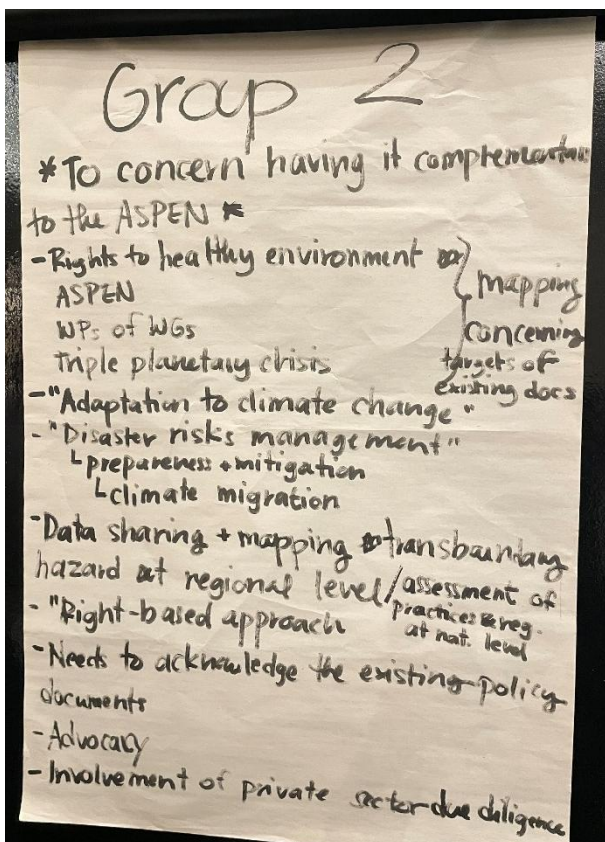 Group 2
*To concern having it complementary
to the ASPEN *
-Rights to healthy environment
ASPEN
WPs of WGs
Triple planetary crisis
mapping
concerning
targets of
existing docs
-"Adaptation to climate change"
-"Disaster risks management"
prepareness + mitigation
climate migration
-Data sharing + mapping transboundary
hazard at regional level/assessment of
practices & reg.
at nat. level
-"Right-based approach
-Needs to acknowledge the existing policy
documents
-Advocacy
-Involvement of private sector-due diligence